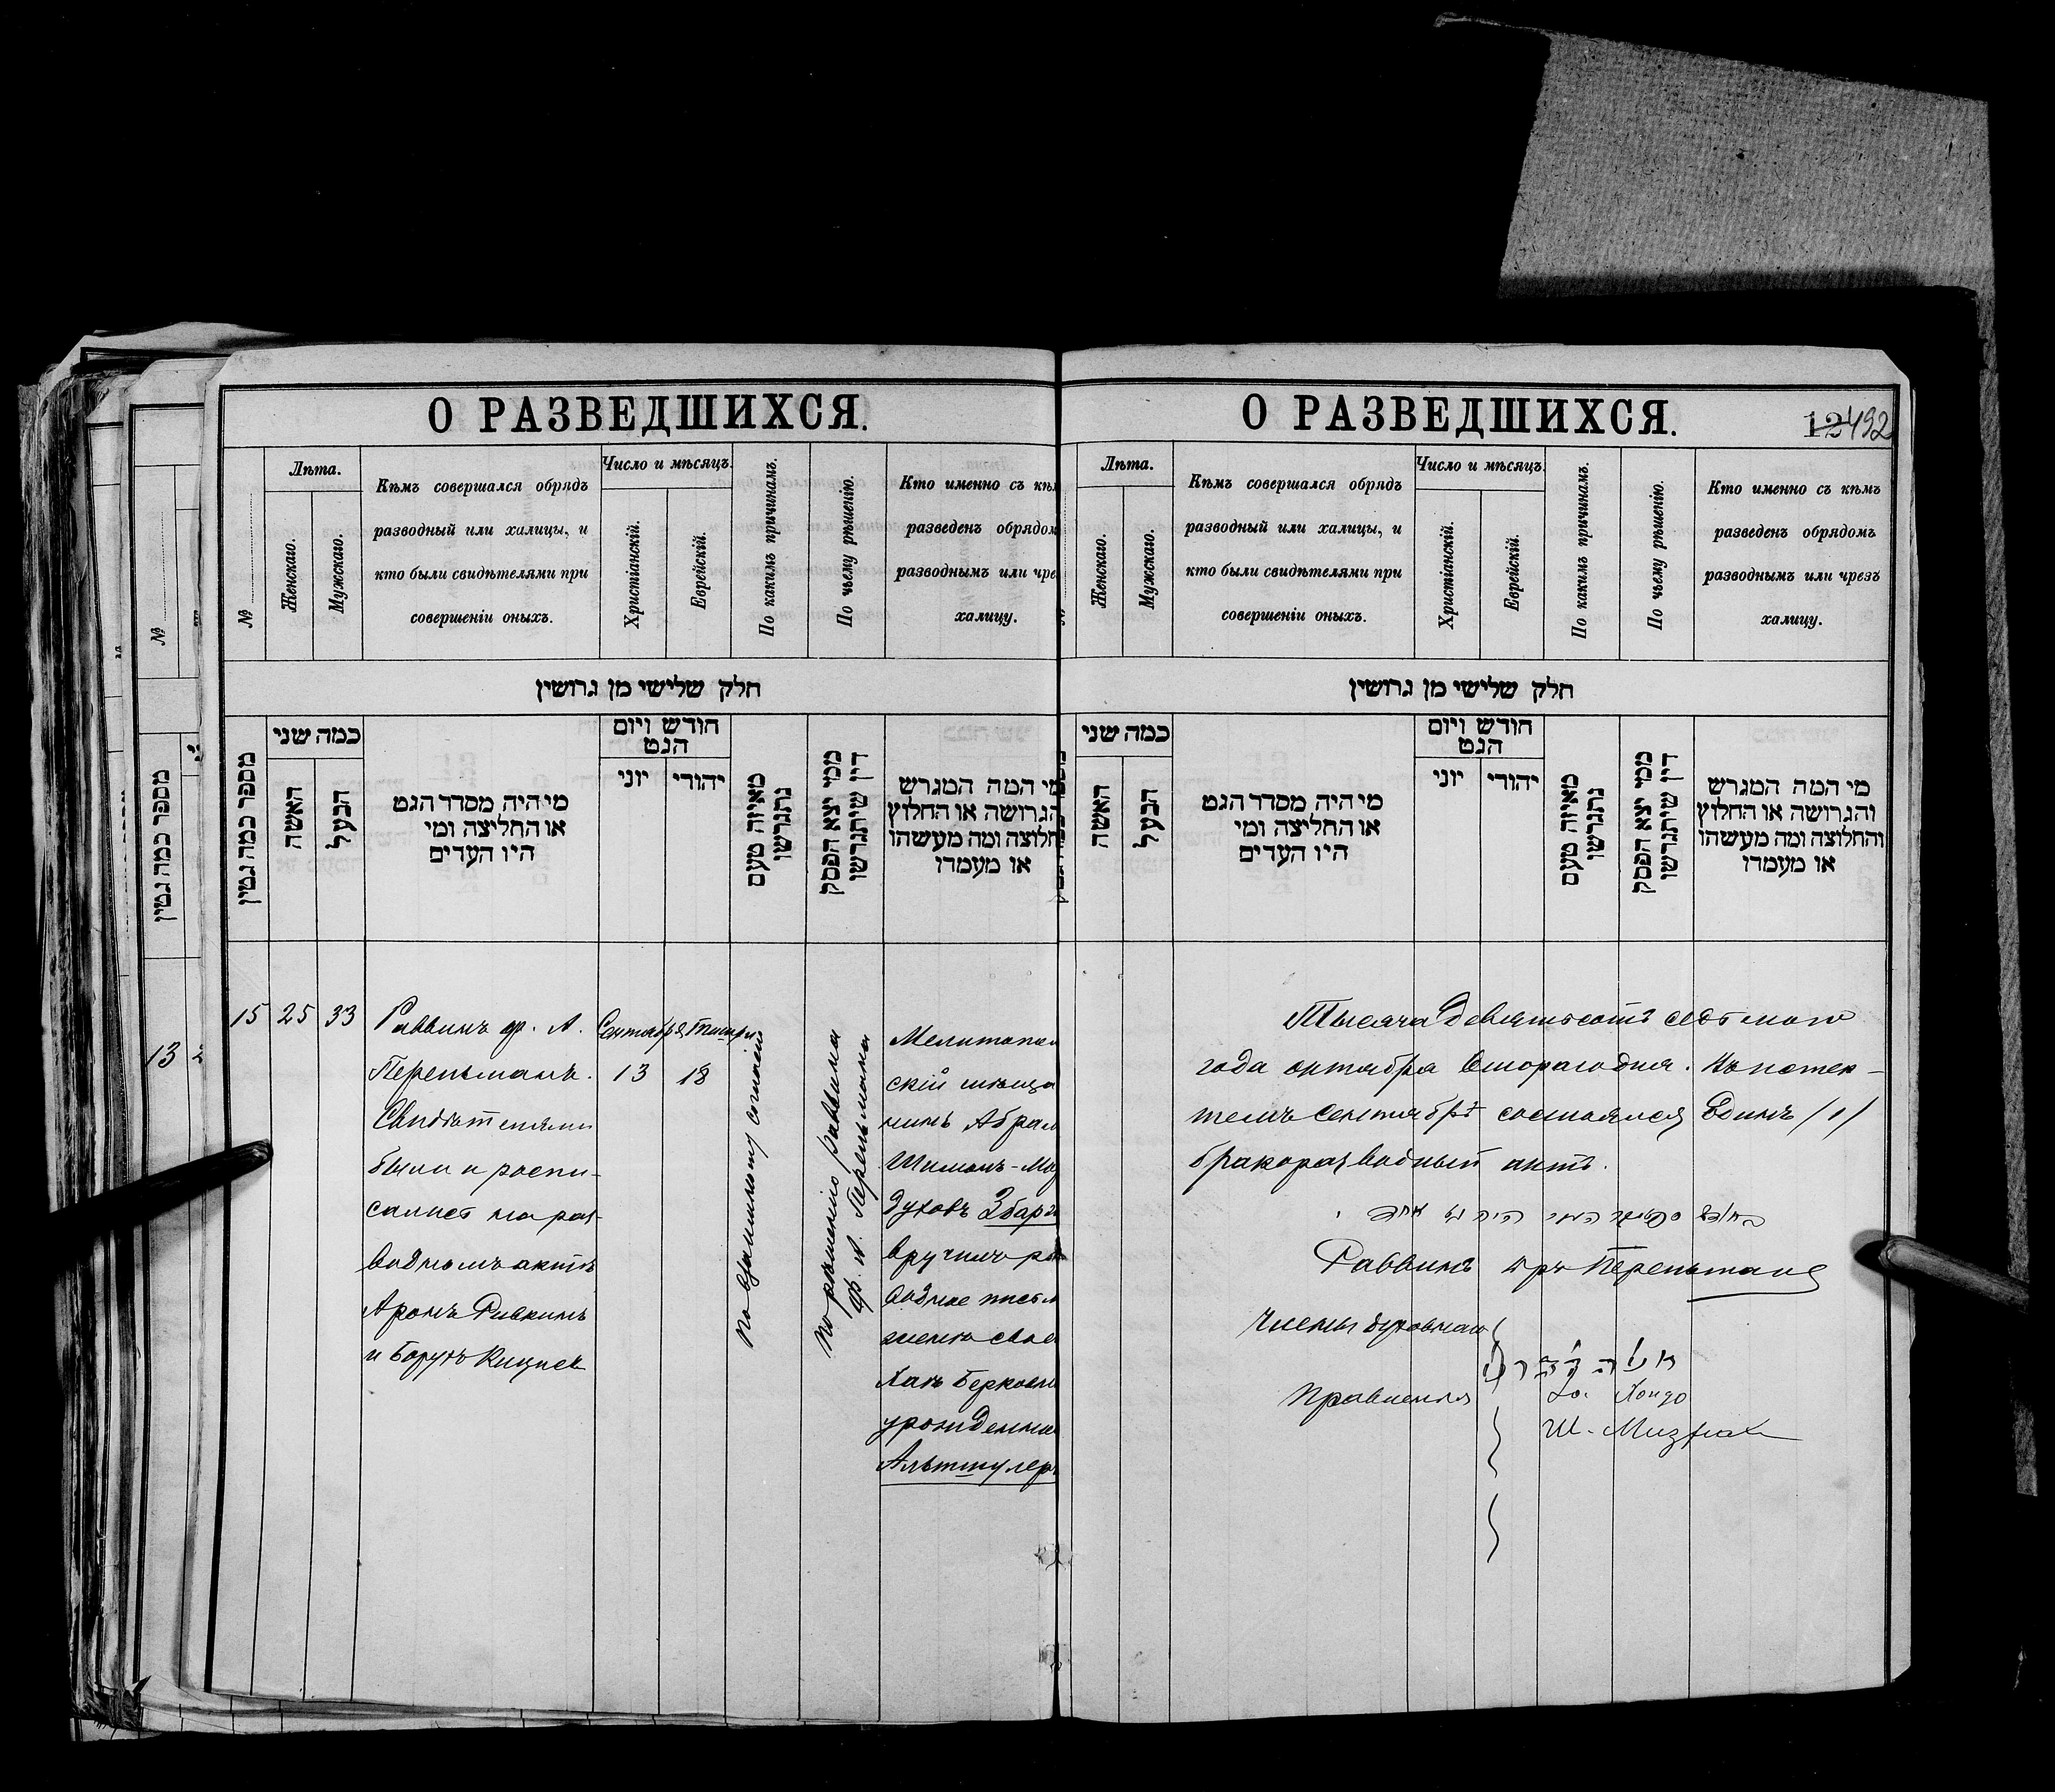 О РАЗВЕДШИХСЯ.
№
Лѣта.
Женскаго.
Мужскаго.
Кѣмъ совершался обрядъ
разводный или халицы, и
кто были свидѣтелями при
совершеніи оныхъ.
Число и мѣсяцъ.
Христіанскій.
Еврейскій.
По какимъ причинамъ.
По чьему рѣшенію.
Кто именно съ кѣм
разведенъ обрядом
разводнымъ или чре
халицу.
חלק שלישי מן גרושין
מספר כמה גטין
כמה שני
האשה
הבעל
מי היה מסדר הגט
או החליצה ומי
היו העדים
חודש ויום
הגט
יוני
יהודי
מאיזה טעם
נתגרשו
ממי יצא הפסק
דין שיתגרשו
מי המה המגרש
הגרושה או החלוץ
חלוצה ומה מעשהו
או מעמדו
15 25 33
Раввинъ др. А.
Перельманъ.
Свидѣтелями
были и распи-
сались на раз-
водномъ актѣ
Аронъ Ривкинъ
и Борухъ
Сентября Тишри
13 18
По взаимному согласію
По рѣшенію раввина
др. А. Перельмана
Мелитополь
скій мѣща
нинъ Абрам
Шимонъ-Мор
духовъ Збарж
вручилъ раз
водное письм
женѣ свое
Ханѣ Беркове
урожденной
Альтшулеръ
О РАЗВЕДШИХСЯ.
12 492
Лѣта.
Женскаго.
Мужскаго.
Кѣмъ совершался обрядъ
разводный или халицы, и
кто были свидѣтелями при
совершеніи оныхъ.
Число и мѣсяцъ.
Христіанскій.
Еврейскій.
По какимъ причинамъ.
По чьему рѣшенію.
Кто именно съ кѣмъ
разведенъ обрядомъ
разводнымъ или чрезъ
халицу.
חלק שלישי מן גרושין
כמה שני
האשה
הבעל
מי היה מסדר הגט
או החליצה ומי
היו העדים
חודש ויום
הגט
יוני
יהודי
מאיזה טעם
נתגרשו
ממי יצא הפסק
דין שיתגרשו
מי המה המגרש
והגרושה או החלוץ
והחלוצה ומה מעשהו
או מעמדו
Тысяча девятьсотъ седьмого
года октября второго дня. Въ истек-
шемъ сентябрѣ состоялся Единъ /1/
бракоразводный актъ.
Раввинъ др Перельманъ
Члены духовнаго
Правленія
Ш.
№
מספר כמה גטין
13 2